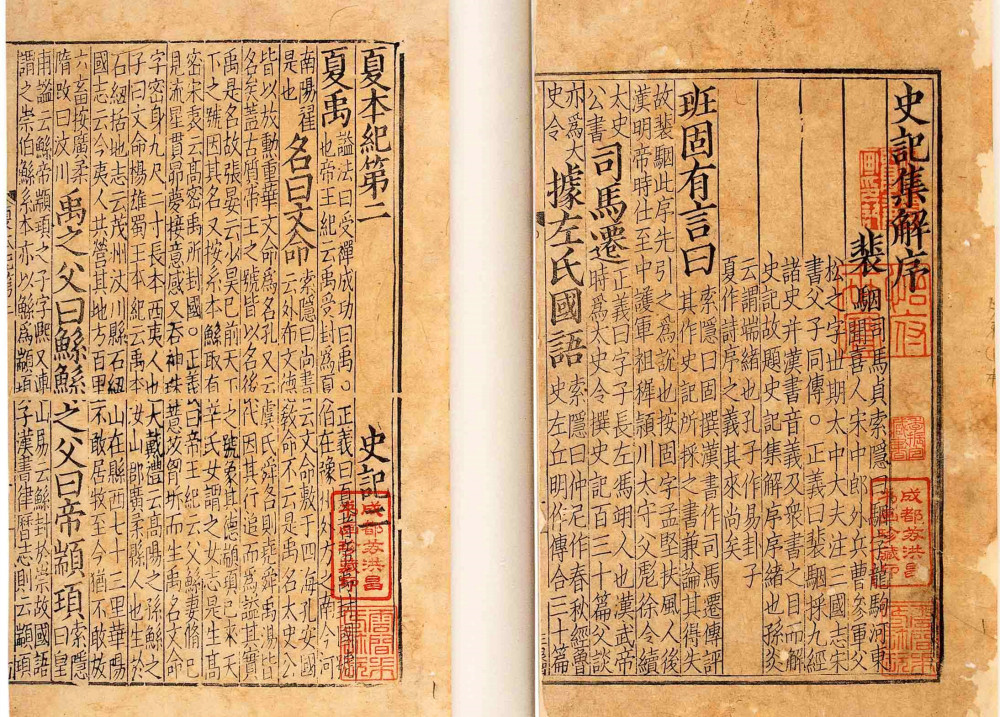 史記集解序
裴駰司馬貞索隱曰駰字龍駒河東
聞喜人宋中郎外兵曹參軍父
松之字世期太中大夫注三國志宋
書父子同傳。正義曰裴駰採九經
諸史并漢書音義及衆書之目而解
史記故題史記集解序序緒也孫炎
云謂端緒也孔子作易序卦子
夏作詩序序之義其來尚矣
班固有言曰索隱曰固撰漢書作司馬遷傳評
其作史記所採之書兼論其得失
故裴駰此序先引之爲說也按固字孟堅扶風人後
漢明帝時仕至中護軍祖稺潁川太守父彪徐令續
太史
公書司馬遷正義曰字子長左馮翊人也漢武帝
時爲太史令撰史記百三十篇父談
亦爲太
史令據左氏國語索隱曰仲尼作春秋經魯
史左丘明作傳合三十篇
夏本紀第二 史記二
夏禹謚法曰受禪成功曰禹。正義曰夏者帝禹封國號
也帝王紀云禹受封爲夏伯在豫州外方之南今河
南陽翟
是也名曰文命索隱曰尚書云文命敷于四海孔安國
云外布文德教命不云是禹名太史公
皆以放勳重華文命爲名孔又云虞氏舜名則堯舜禹湯皆
名矣蓋古質帝王之號皆以名後代因其行追而爲謚其實
禹是名故張晏云少昊已前天下之號象其德顓頊已來天
下之號因其名又按系本鯀取有辛氏女謂之女志是生高
密宋衷云高密禹所封國。正義曰帝王紀云父鯀妻脩己
見流星貫昴夢接意感又呑神珠薏苡胷坼而生禹名文命
字密身九尺二寸長本西夷人也大戴禮云高陽之孫鯀之
子曰文命楊雄蜀王本紀云禹本汶山郡廣柔縣人也生於
石紐括地志云茂州汶川縣石紐山在縣西七十三里華陽
國志云今夷人共營其地方百里不敢居牧至今猶不敢放
六畜按廣柔
隋改曰汶川禹之父曰鯀鯀之父曰帝顓頊索隱
曰皇
甫謐云鯀帝顓頊之子字熙又連山易云鯀封於崇故國語
謂之崇伯鯀系本亦以鯀爲顓頊子漢書律曆志則云顓頊